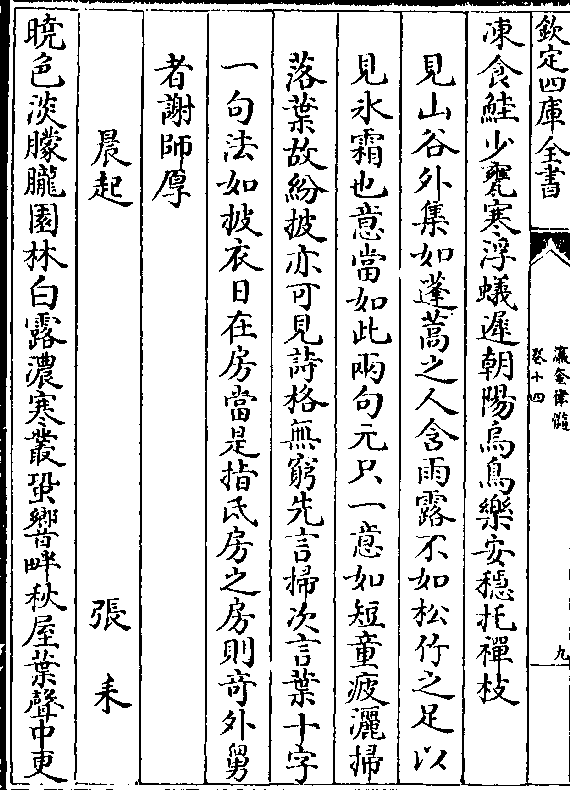 欽定四庫全書
瀛奎律髓
卷十四
九
凍食鮭少甕寒浮蟻遲朝陽烏鳥樂安穩托禪枝
見山谷外集如蓬蒿之人含雨露不如松竹之足以
見氷霜也意當如此兩句元只一意如短童疲灑掃
落葉故紛披亦可見詩格無窮先言掃次言葉十字
一句法如披衣日在房當是指氐房之房則竒外舅
者謝師厚
晨起 張耒
暁色淡朦朧園林白露濃寒叢蛩響畔秋屋葉聲中更